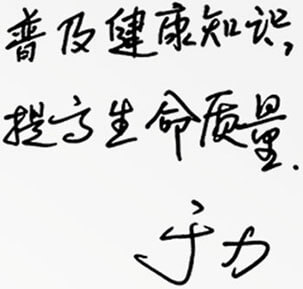 普及健康知识,
提高生命质量.
于力